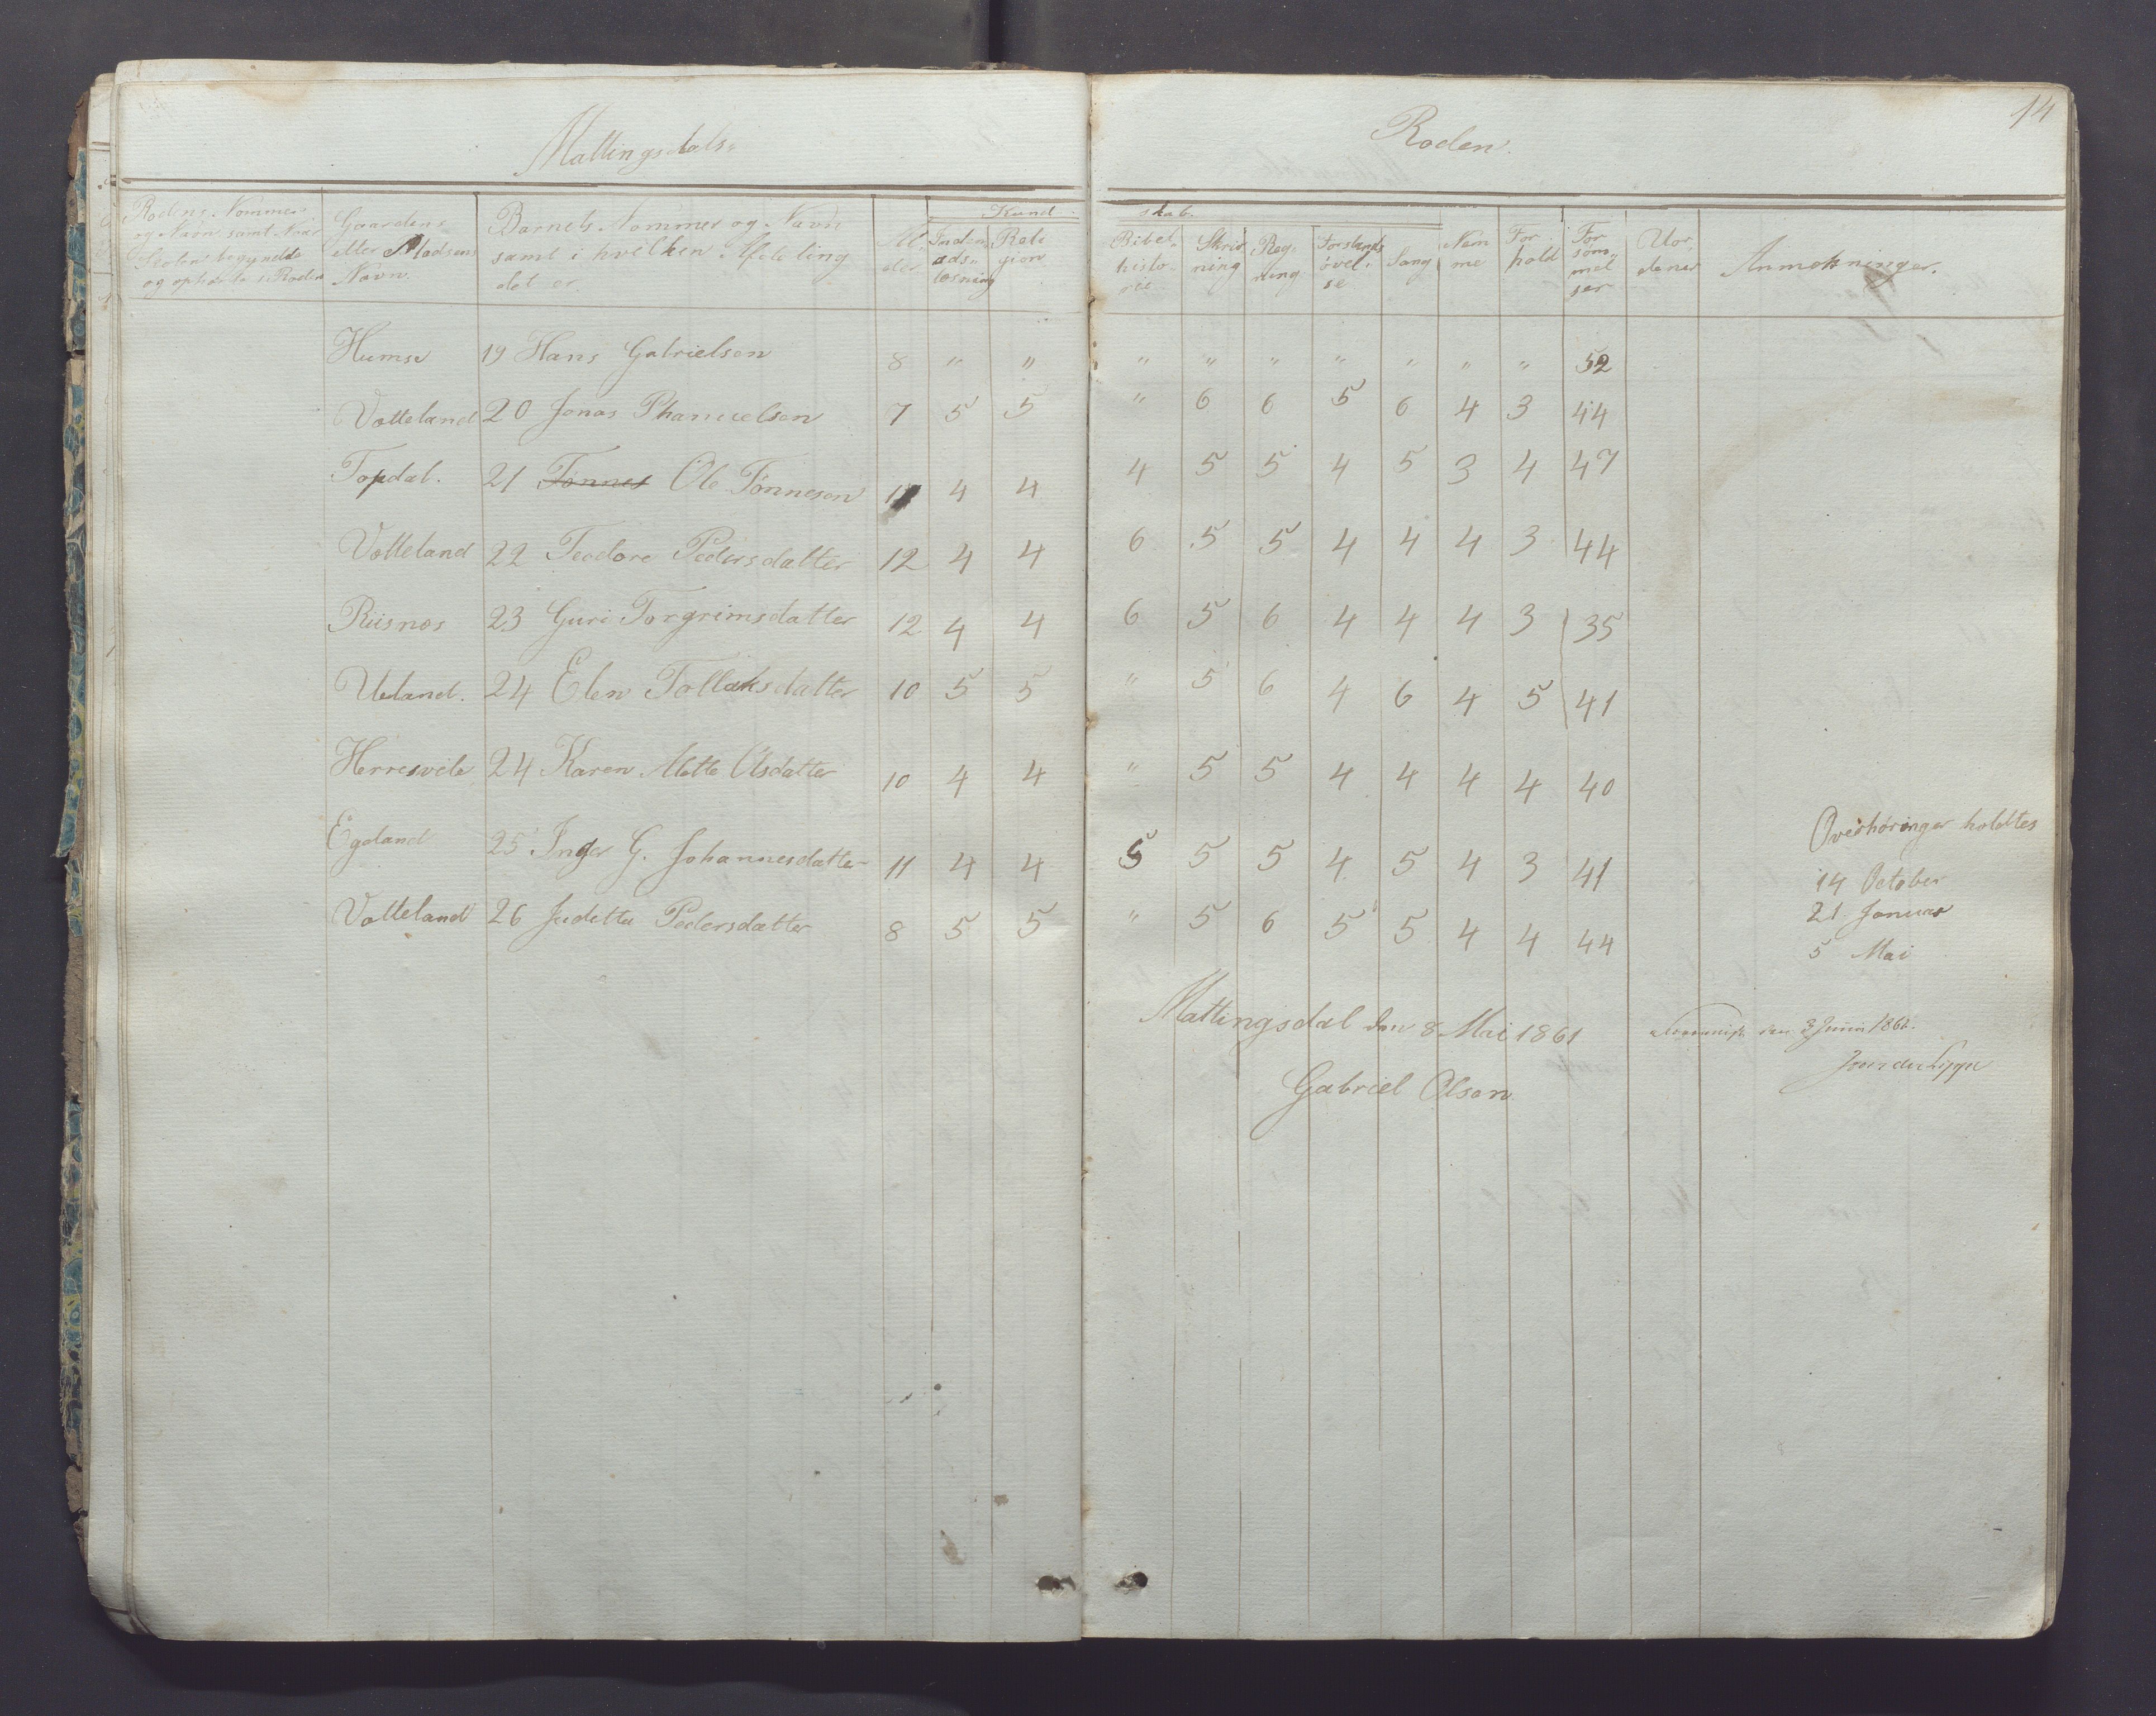 14
Mattingsdals- Roden.
Rodens Nommer og Navn samt Naar Skolen begyndte og ophørte i Roden
Gaardens eller Pladsens Navn
Barnets Nommer og Navn samt i hvilken Afdeling det er.
Al-der
Kund-skab.
Inden-ads-læsning
Reli-gion
Bibel-histo-rie
Skriv-ning
Reg-ning
Forstands-øvel-se
Sang
Nem-me
For-hold
For-søm-mel-ser
Uor-dener
Anmerkninger.
Humse 19 Hans Gabrielsen 8 " " " " " " " " " 52
Votteland 20 Jonas Phanuelsen 7 5 5 " 6 6 5 6 4 3 44
Topdal. 21 Tønnes Ole Tønnesen 11 4 4 4 5 5 4 5 3 4 47
Votteland 22 Teodore Pedersdatter 12 4 4 6 5 5 4 4 4 3 44
Riisnes 23 Guri Torgrimsdatter 12 4 4 6 5 6 4 4 4 3 35
Ueland. 24 Elen Tollaksdatter 10 5 5 " 5 6 4 6 4 5 41
Herresvele 24 Karen Mette Olsdatter 10 4 4 " 5 5 4 4 4 4 40
Egeland 25 Inger G. Johannesdatter 11 4 4 5 5 5 4 5 4 3 41
Votteland 26 Juditta Pedersdatter 8 5 5 " 5 6 5 5 4 4 44
Overhøringer holdtes
14 October
21 Januar
5 Mai
Mattingsdal den 8 Mai 1861
Gabriel Olsen
den 3 Juni 186